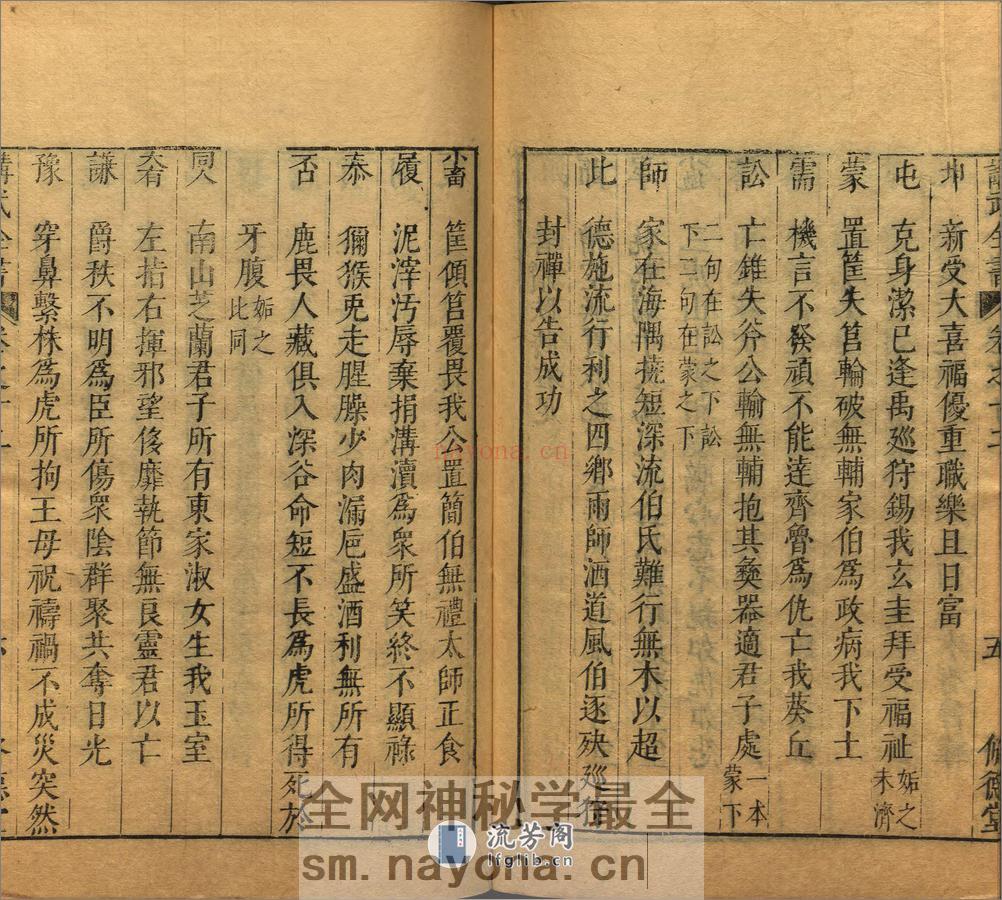 坤　新受大喜福優重職樂且日富
屯　克身潔己逢禹廵狩錫我玄圭拜受福祉姤之未濟
蒙　置筐失筥輪破無輔家伯爲政病我下土
需　機言不發頑不能達齊魯爲仇亡我葵丘
訟　亡錐失斧公輸無輔抱其彝器適君子處一本蒙下
二句在訟之下訟
下二句在蒙之下
師　家在海隅撓短深流伯氏難行無木以超
比　德施流行利之四鄉雨師洒道風伯逐殃廵狩
封禪以告成功
五
修德堂
小畜　筐傾筥覆畏我公置簡伯無禮太師正食
履　泥滓汚辱棄捐溝瀆爲衆所笑終不顯祿
泰　獼猴兎走腥臊少肉漏巵盛酒利無所有
否　鹿畏人藏俱入深谷命短不長爲虎所得死於
牙腹姤之比同
同人　南山芝蘭君子所有東家淑女生我玉室
大有　左指右揮邪望侈靡執節無良靈君以亡
謙　爵秩不明爲臣所傷衆陰群聚共奪日光
豫　穿鼻繫株爲虎所拘王母祝禱禍不成災突然
全网神秘学最全
sm.nayona.cn
nayona.cn
流芳阁
lfglib.cn